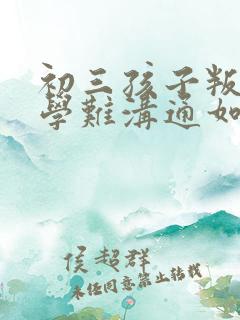 初三孩子叛
學難溝通如
侯超群
未任同意禁止转载